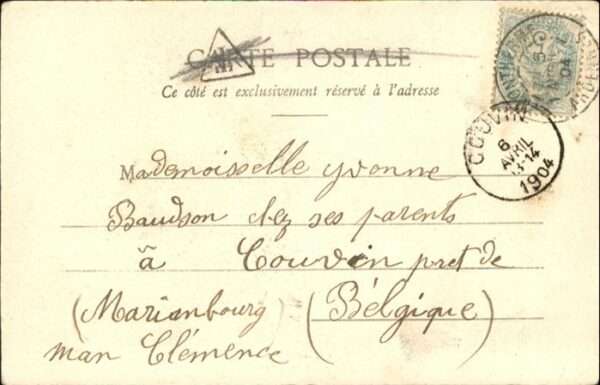 CARTE POSTALE
Ce côté est exclusivement réservé à l'adresse
COUVIN
6
AVRIL
13-14
1904
Mademoisselle Yvonne
Baudson chez ses parents
à Couvin pret de
(Marianbourg) (Bélgique)
man Clémence